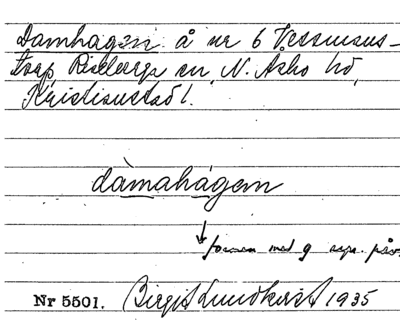 Damhagen å nr 6 Vessmans-
torp, Riseberga sn, N. Åsbo hd,
Kristianstad l.
dàmahágem
↓
formen med g upp. påv.
Nr 5501. Birgit Lundkvist 1935